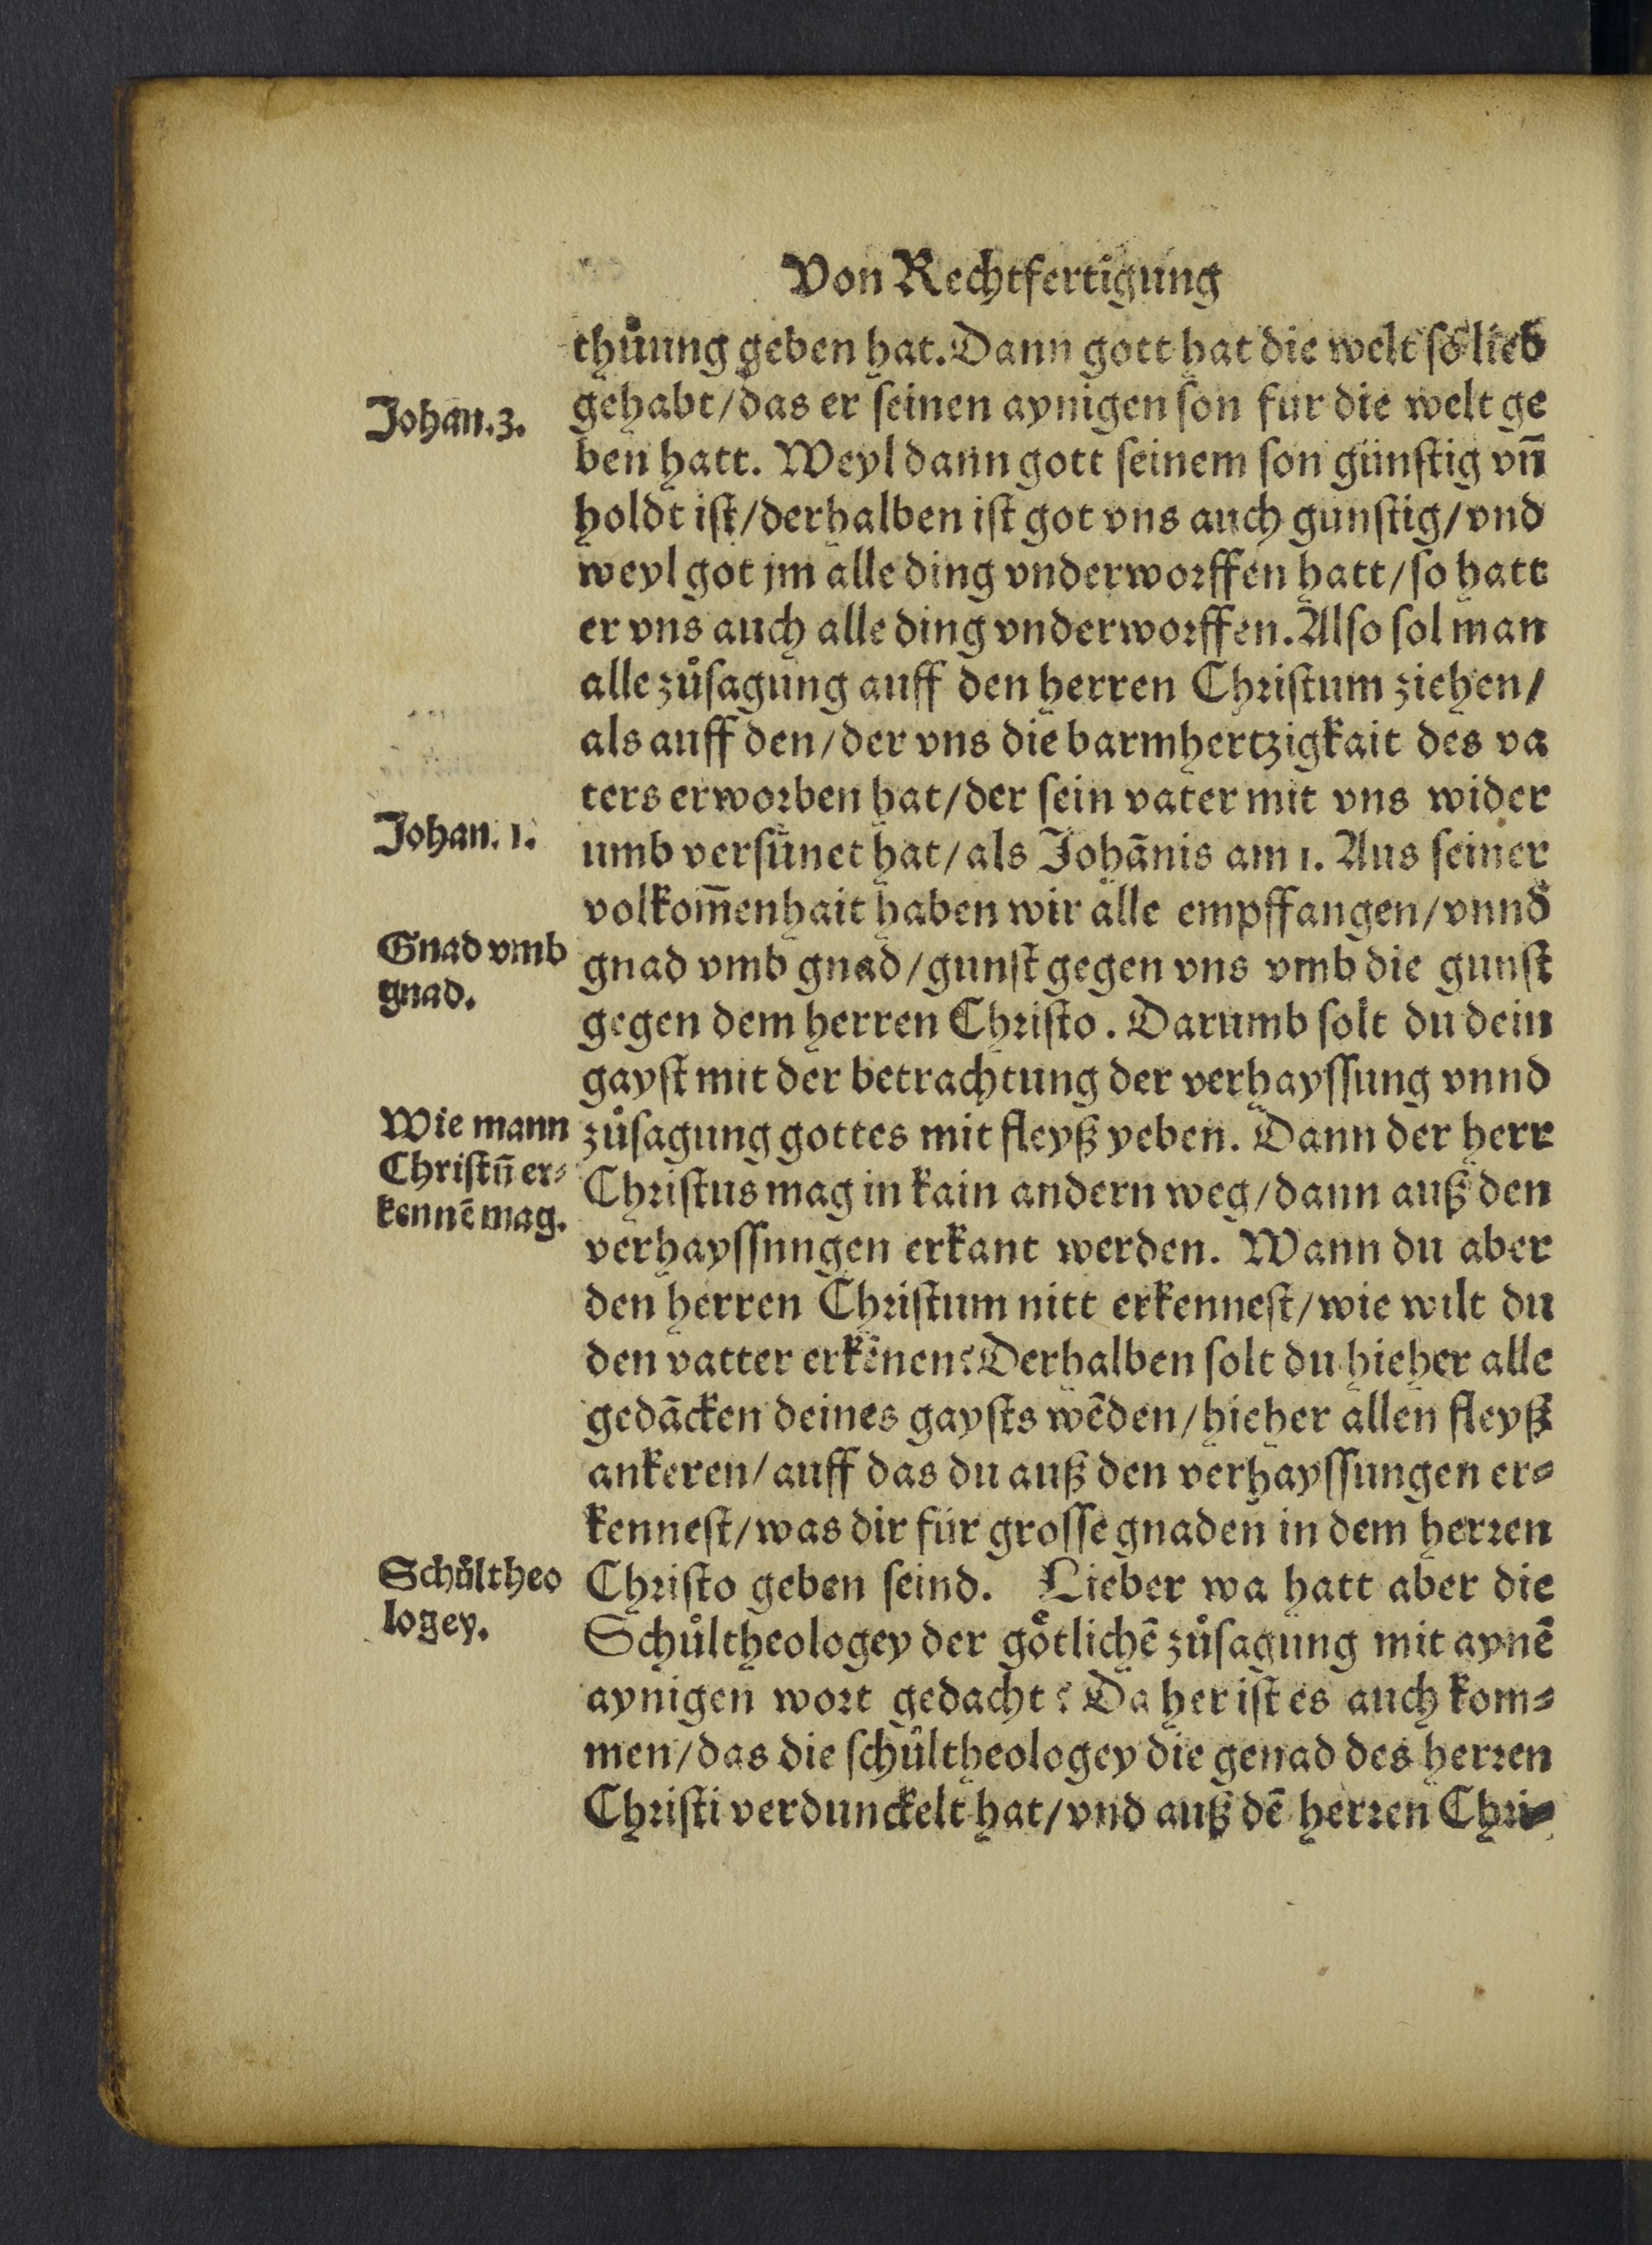 Von Rechtfertigung
thuͦung geben hat. Dann gott hat die welt so lieb
Johan. 3.
gehabt/ das er seinen aynigen son fur die welt ge
ben hatt. Weyl dann gott seinem son günstig vn̄
holdt ist/ derhalben ist got vns auch gunstig/ vnd
weyl got jm alle ding vnderworffen hatt/ so hatt
er vns auch alle ding vnderworffen. Also sol man
alle zuͦsagung auff den herren Christum ziehen/
als auff den/ der vns die barmhertzigkait des va
ters erworben hat/ der sein vater mit vns wider
Johan. 1.
umb versünet hat/ als Johānis am 1. Aus seiner
volkom̄enhait haben wir alle empffangen/ vnnd
Gnad vmb
gnad.
gnad vmb gnad/ gunst gegen vns vmb die gunst
gegen dem herren Christo. Darumb solt du dein
gayst mit der betrachtung der verhayssung vnnd
Wie mann
Christū er-
kennē mag.
zuͦsagung gottes mit fleyß yeben. Dann der herr
Christus mag in kain andern weg/ dann auß den
verhayssnngen erkant werden. Wann du aber
den herren Christum nitt erkennest/ wie wilt du
den vatter erkēnen? Derhalben solt du hieher alle
gedācken deines gaysts wēden/ hieher allen fleyß
ankeren/ auff das du auß den verhayssungen er-
kennest/ was dir für grosse gnaden in dem herren
Schuͦltheo
logey.
Christo geben seind. Lieber wa hatt aber die
Schuͦltheologey der goͤtlichē zuͦsagung mit aynē
aynigen wort gedacht? Da her ist es auch kom-
men/ das die schuͦltheologey die genad des herren
Christi verdunckelt hat/ vnd auß dē herren Chri-